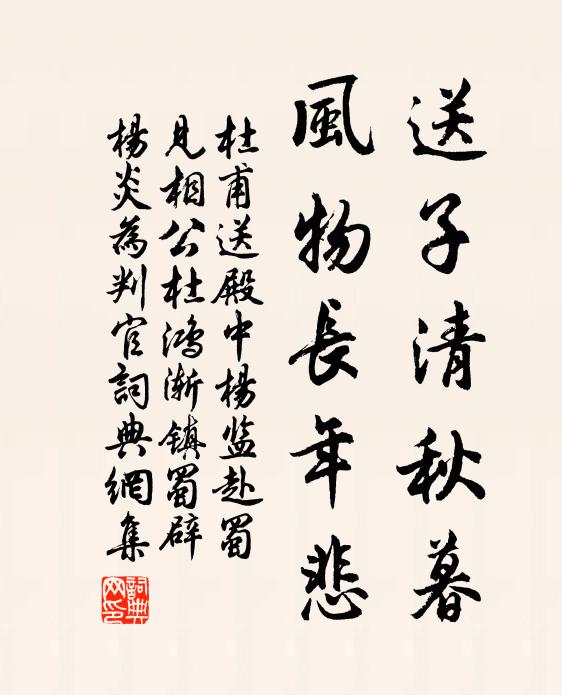 送子清秋暮
風物長年悲
杜甫送殿中楊监赴蜀
見相公杜鴻渐镇蜀辟
楊炎為判官詞典網集